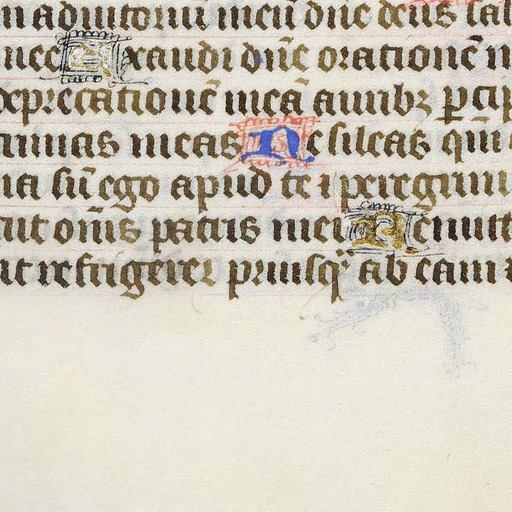 n adiutoriū meū dñe deus sal
mee Exaudi dñe orationē m
deprecationē meā auribz ꝑcip
rimas meas Ne sileas qm̄
na sū ego apud te ⁊ peregrinu
cut om̄s patres mei Remitt
ut refrigerer priusq̄ abeam